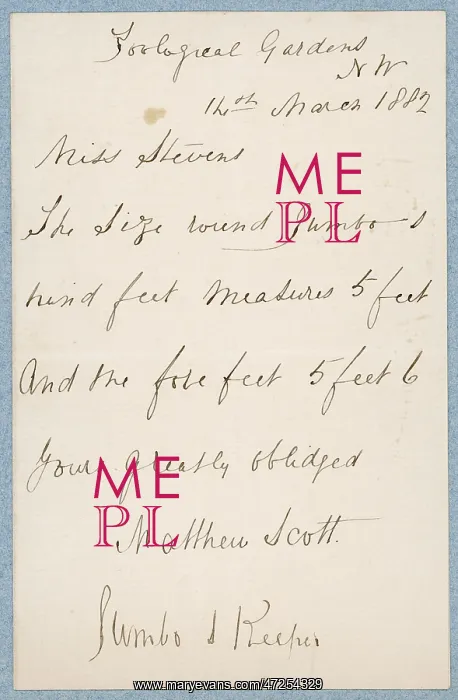 Zoological Gardens
N W
14th March 1882
Miss Stevens
The Size round Jumbo s
hind feet measures 5 feet
And the fore feet 5 feet 6
Yours greatly oblidged
Matthew Scott.
Jumbo s Keeper
ME
PL
ME
PL
www.maryevans.com/47254329